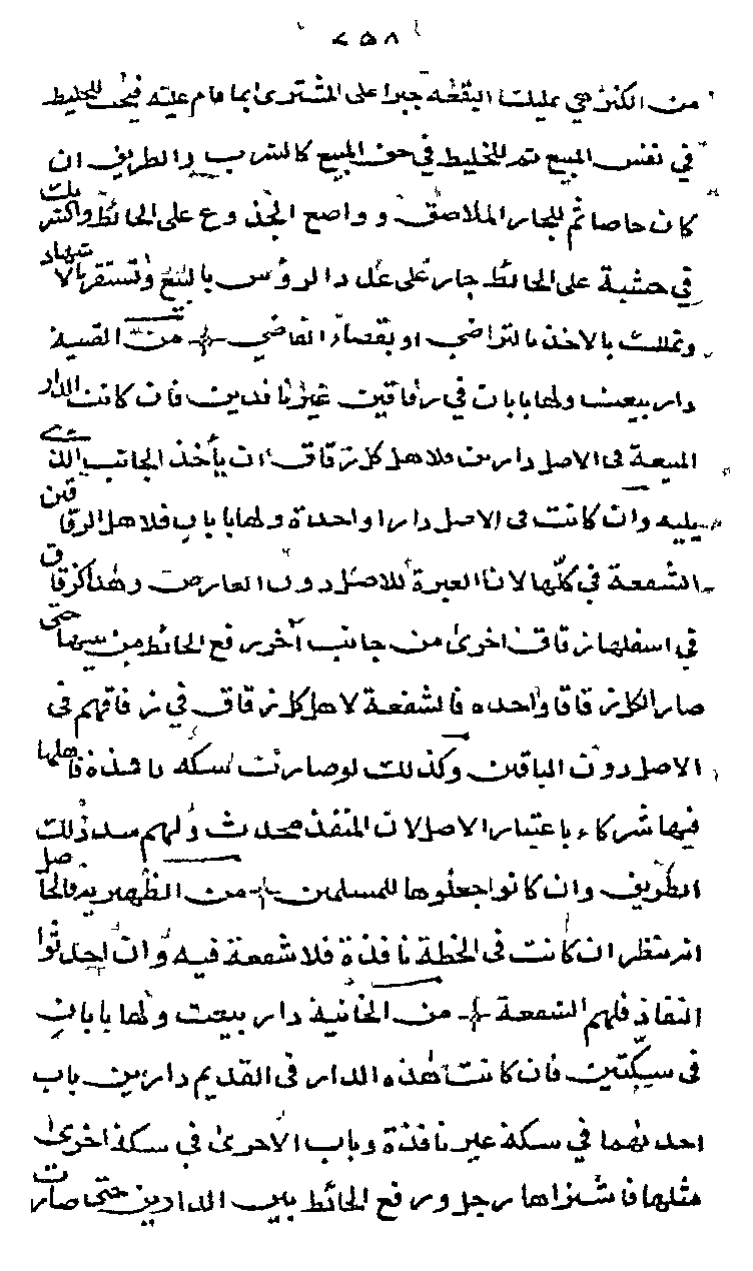 ٢٥٨
من الكنز هي تمليك البقعة جبرا على المشترى بما قام عليه فيجب للخليط
في نفس المبيع ثم للخليط في حق المبيع كالشرب والطريق ان
كان خاصا ثم للجار الملاصق وواضع الجذوع على الحائط والشريك
في خشبة على الحائط جار على عدد الرؤس بالبيع وتستقر بالاشهاد
وتملك بالاخذ بالتراضي او بقضاء القاضي من القنية
دار بيعت ولها بابان في زقاقين غير نافذين فان كانت الدار
المبيعة في الاصل دارين فلاهل كل زقاق ان يأخذ الجانب الذي
يليه وان كانت في الاصل دارا واحدة ولها بابان فلاهل الزقاقين
الشفعة في كلها لان العبرة للاصل دون العارض وهذا كزقاق
في اسفلها زقاق اخرى من جانب آخر رفع الحائط من بينهما حتى
صار الكل زقاقا واحده فالشفعة لاهل كل زقاق في زقاقهم في
الاصل دون الباقين وكذلك لو صارت سكة نافذة فاهلها
فيها شركاء باعتبار الاصل لان المنفذ محدث ولهم سد ذلك
الطريق وان كانوا جعلوها للمسلمين من الظهيرية فالحاصل
انه ينظر ان كانت في الخطة نافذة فلا شفعة فيه وان احدثوا
النفاذ فلهم الشفعة من الخانية دار بيعت ولها بابان
في سكتين فان كانت هذه الدار في القديم دارين باب
احدىهما في سكة غير نافذة وباب الاخرى في سكة اخرى
مثلها فاشتراها رجل ورفع الحائط بين الدارين حتى صارت